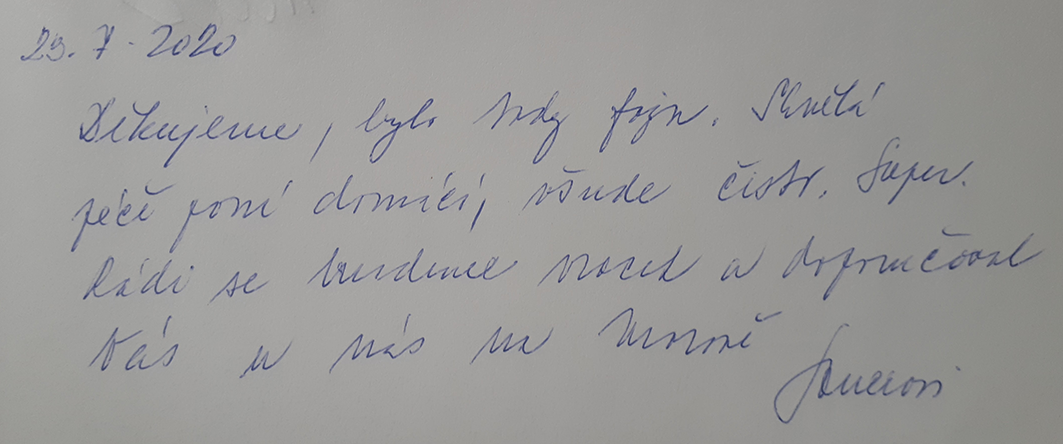 23. 7. 2020
Děkujeme, bylo tady fajn. Skvělá
péče paní domácí, všude čisto. Super.
Rádi se budeme vracet a doporučovat
Vás u nás na Moravě